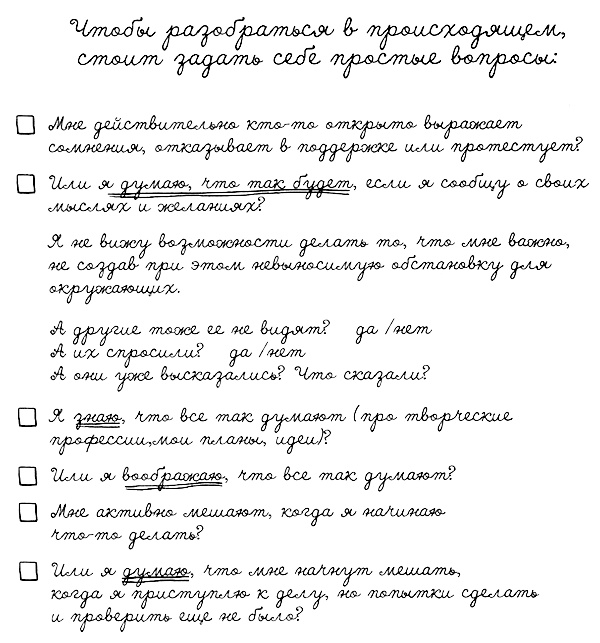 Чтобы разобраться в происходящем,
стоит задать себе простые вопросы:
Мне действительно кто-то открыто выражает
сомнения, отказывает в поддержке или протестует?
Или я думаю, что так будет, если я сообщу о своих
мыслях и желаниях?
Я не вижу возможности делать то, что мне важно,
не создав при этом невыносимую обстановку для
окружающих.
А другие тоже ее не видят? да /нет
А их спросили? да /нет
А они уже высказались? Что сказали?
Я знаю, что все так думают (про творческие
профессии,мои планы, идеи)?
Или я воображаю, что все так думают?
Мне активно мешают, когда я начинаю
что-то делать?
Или я думаю, что мне начнут мешать,
когда я приступлю к делу, но попытки сделать
и проверить еще не было?